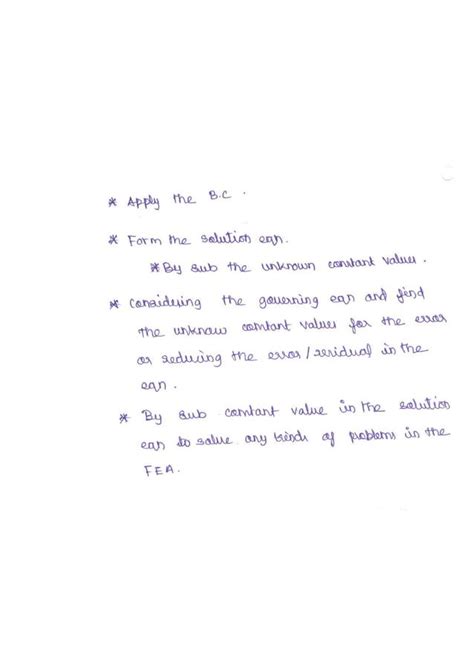 * Apply the B.C .
* Form the solution eqn.
* By sub the unknown constant values .
* considering the governing eqn and find
the unknow constant values for the error
or reducing the error / residual in the
eqn .
* By sub constant value in the solution
eqn to solve any kinds of problems in the
FEA.